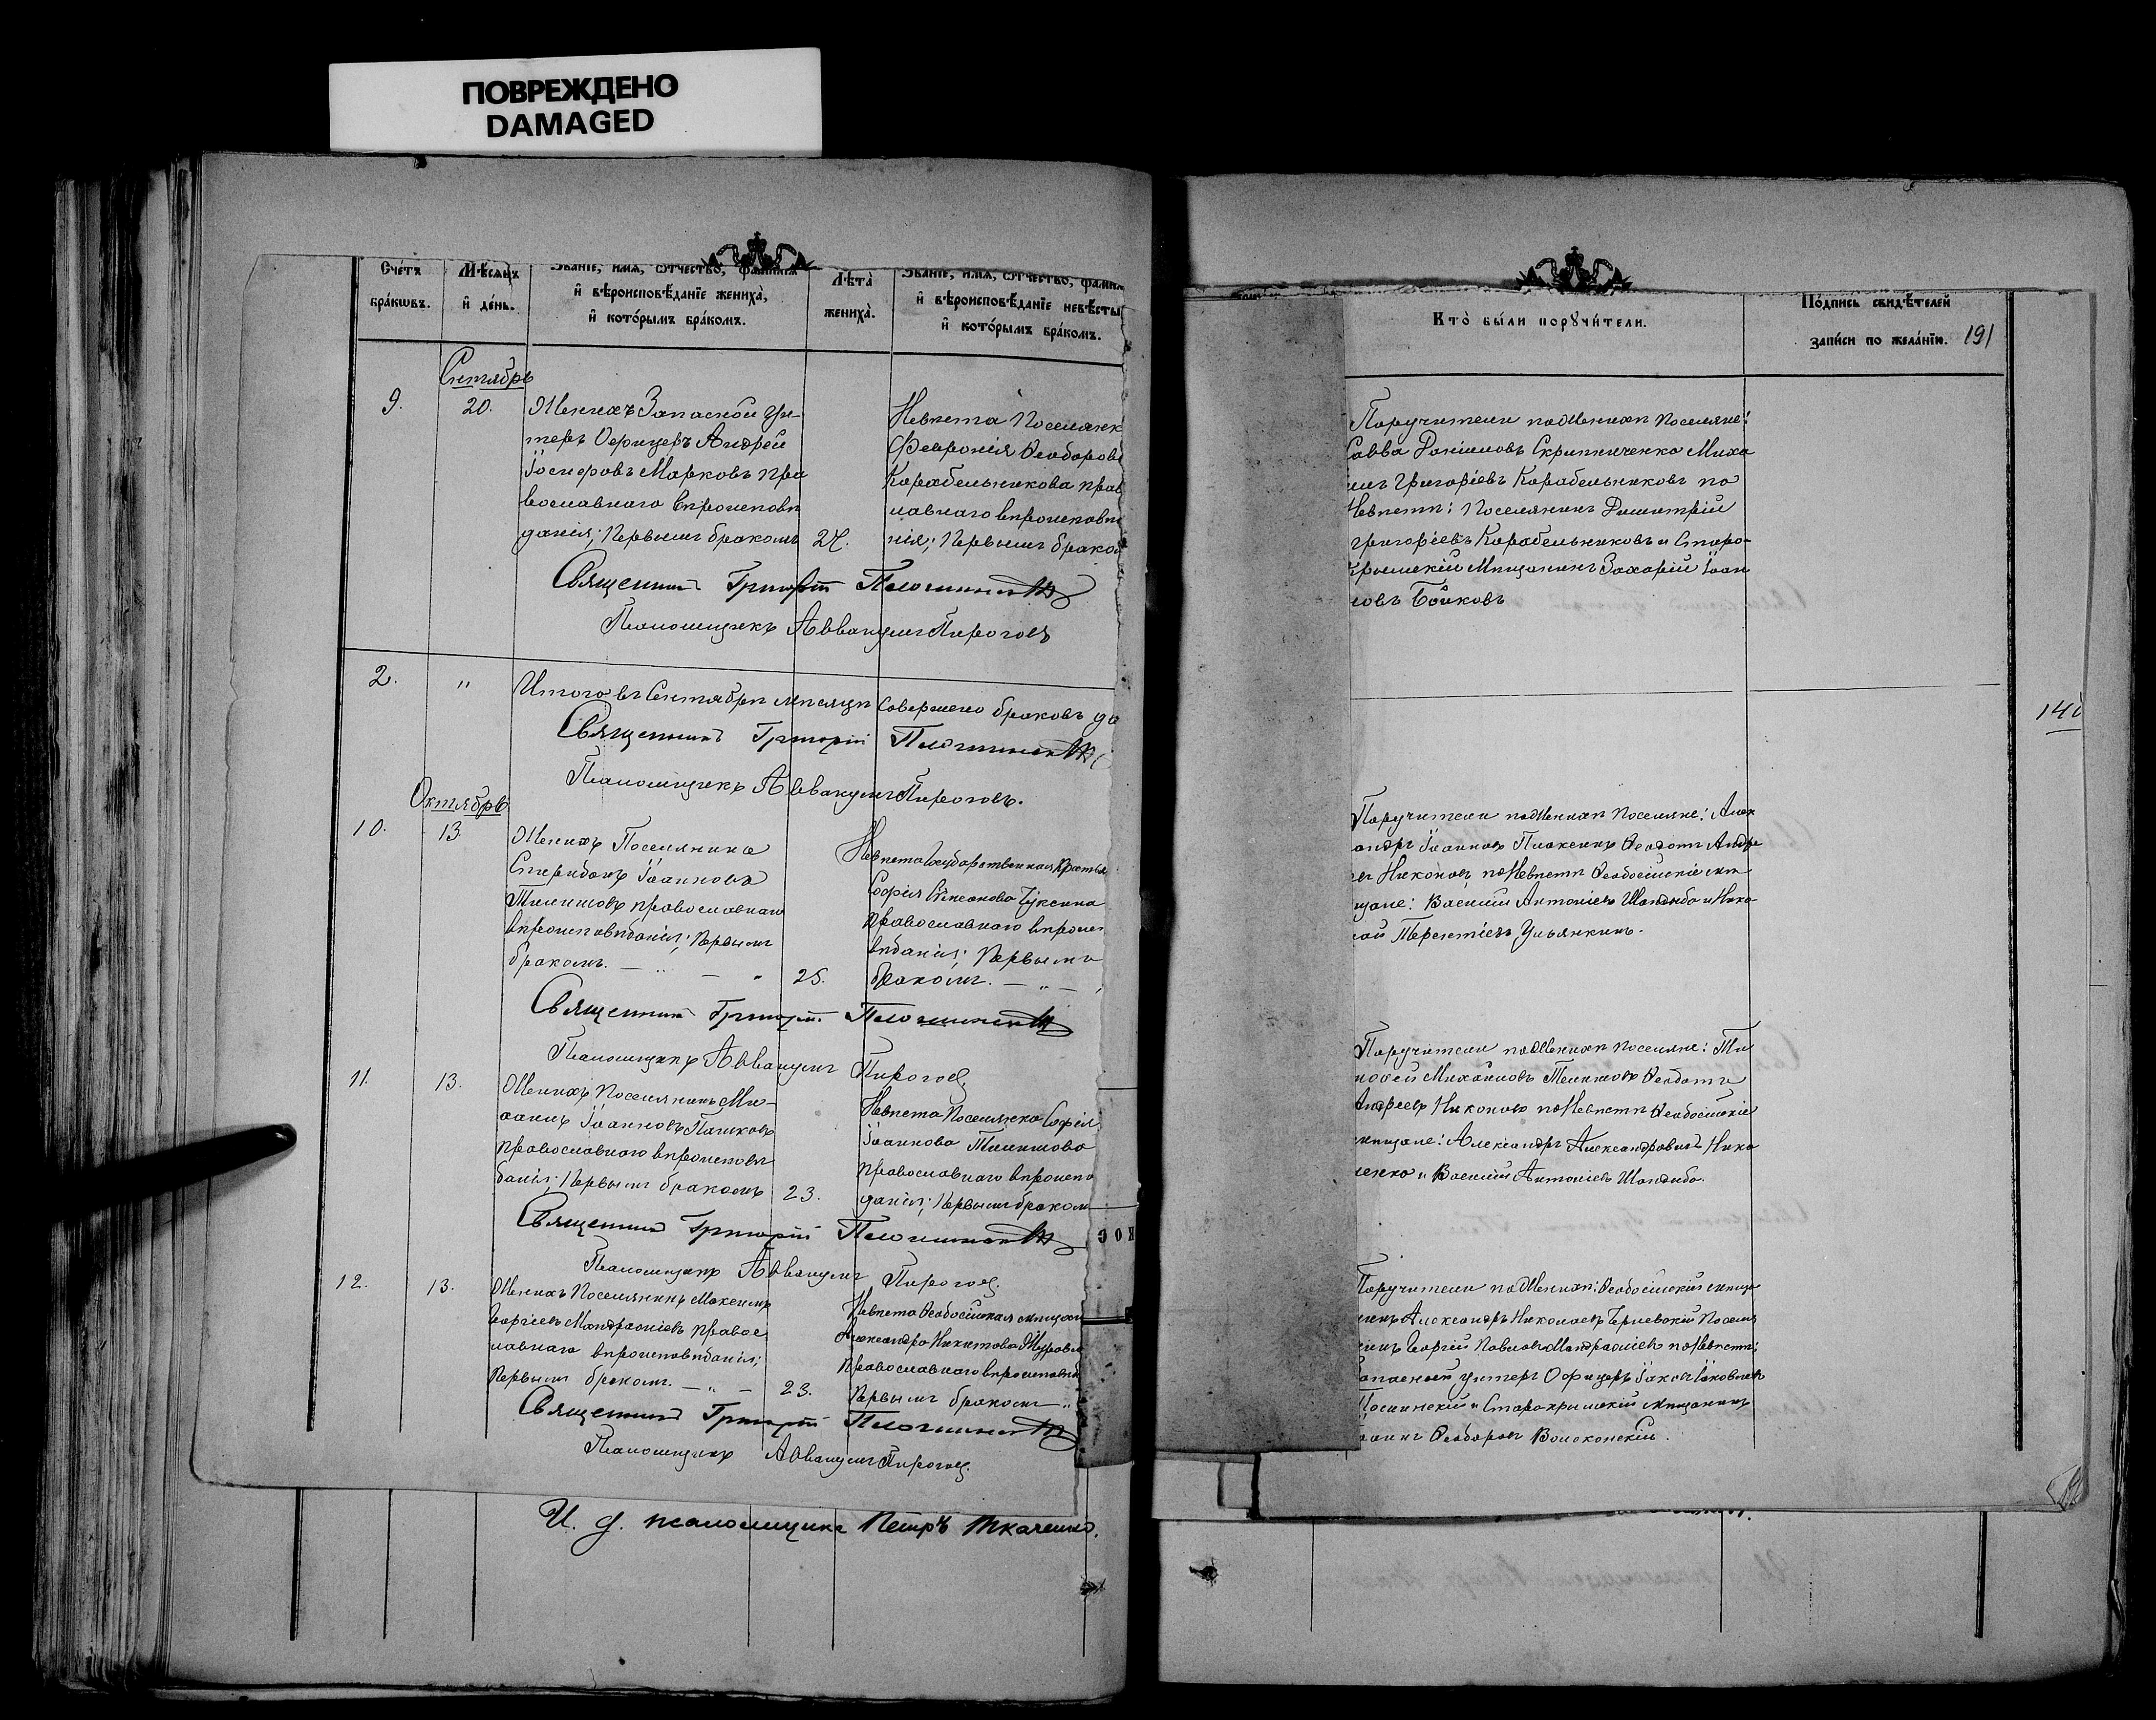 ПОВРЕЖДЕНО
DAMAGED
Счетъ браковъ.
Мѣсяцъ и день.
Званіе, имя, отчество, фамилія и вѣроисповѣданіе жениха, и которымъ бракомъ.
Лѣта жениха.
и вѣроисповѣданіе невѣсты и которымъ бракомъ.
Сентябрь
9.
20.
Женихъ Запасной Ун-
теръ Офицеръ Андрей
Іосифовъ Марковъ пра
вославнаго вѣроисповѣ
данія; первымъ бракомъ
27.
Невѣста Поселянк
Февронія Ѳеодоров
Карабельникова прав
славнаго вѣроисповѣ
нія; первымъ брако
Священникъ Григорій
Псаломщикъ Аввакумъ Пироговъ
2.
"
Итого въ Сентябрѣ мѣсяцѣ совершено браковъ
Священникъ Григорій
Псаломщикъ Аввакумъ Пироговъ.
Октябрь
10.
13.
Женихъ Поселянинъ
Спиридонъ Іоанновъ
православнаго
вѣроисповѣданія; первымъ
бракомъ. — " — "
25.
Невѣста Государственная Крестьян
Софія
православнаго вѣроис
вѣданія; первымъ
бракомъ. — " —
Священникъ Григорій
Псаломщикъ Аввакумъ Пироговъ
11.
13.
Женихъ Поселянинъ Ми-
хаилъ Іоанновъ Пашковъ
православнаго вѣроисповѣ
данія; первымъ бракомъ
23.
Невѣста Поселянка Софія
Іоаннова
православнаго вѣроиспо
данія; первымъ браком
Священникъ Григорій
Псаломщикъ Аввакумъ Пироговъ
12.
13.
Женихъ Поселянинъ Максимъ
Георгіевъ правос
лавнаго вѣроисповѣданія;
первымъ бракомъ. — " —
23.
Невѣста Ѳеодосійская мѣщан
Александра Никитова
православнаго вѣроисповѣд
первымъ бракомъ — "
Священникъ Григорій
Псаломщикъ Аввакумъ Пироговъ
И. д. псаломщика Петръ Ткаченко.
Кто были поручители.
Подпись свидѣтелей записи по желанію.
191
Поручители по Женихѣ поселяне:
Савва Даніиловъ Скрипниченко Миха
илъ Григоріевъ Карабельниковъ по
Невѣстѣ: Поселянинъ Димитрій
Григоріевъ Карабельниковъ и Старо-
крымскій Мѣщанинъ Захарій Іоан
новъ Бойковъ
Поручители по Женихѣ поселяне: Алек
андръ Іоанновъ Ѳеодотъ Андре
въ Никоновъ, по Невѣстѣ Ѳеодосійскіе мѣ
щане: Василій Антоніевъ и Нико
лай Терентіевъ Ульянкинъ.
Поручители по Женихѣ поселяне: Ти
моѳей Михайловъ Ѳеодотъ
Андреевъ Никоновъ по Невѣстѣ Ѳеодосійскіе
мѣщане: Александръ Александровичъ Нико
ленко и Василій Антоніевъ
Поручители по Женихѣ: Ѳеодосійскій мѣща
нинъ Александръ Николаевъ Чернявскій Поселя
нинъ Георгій Павловъ по Невѣстѣ:
Запасной унтеръ Офицеръ Іаковъ Іаковлевъ
и Старокрымскій мѣщанинъ
Іоаннъ Ѳеодоровъ